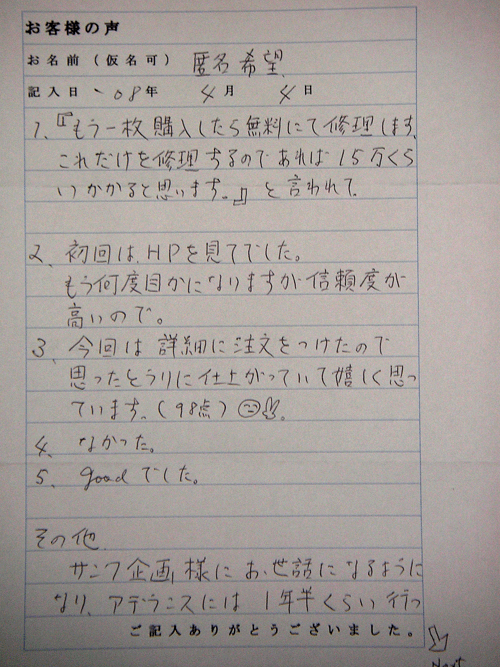 お客様の声
お名前（仮名可） 匿名希望
記入日 '08年 4月 4日
1、『もう一枚購入したら無料にて修理します。
これだけを修理するのであれば15万くら
いかかると思います。』と言われて。
2、初回は、HPを見てでした。
もう何度目かになりますが信頼度が
高いので。
3、今回は詳細に注文をつけたので
思ったとうりに仕上がっていて嬉しく思っ
ています。(98点)
4、なかった。
5、goodでした。
その他
サンワ企画様にお世話になるように
なり、アデランスには1年半くらい行っ
ご記入ありがとうございました。
Next